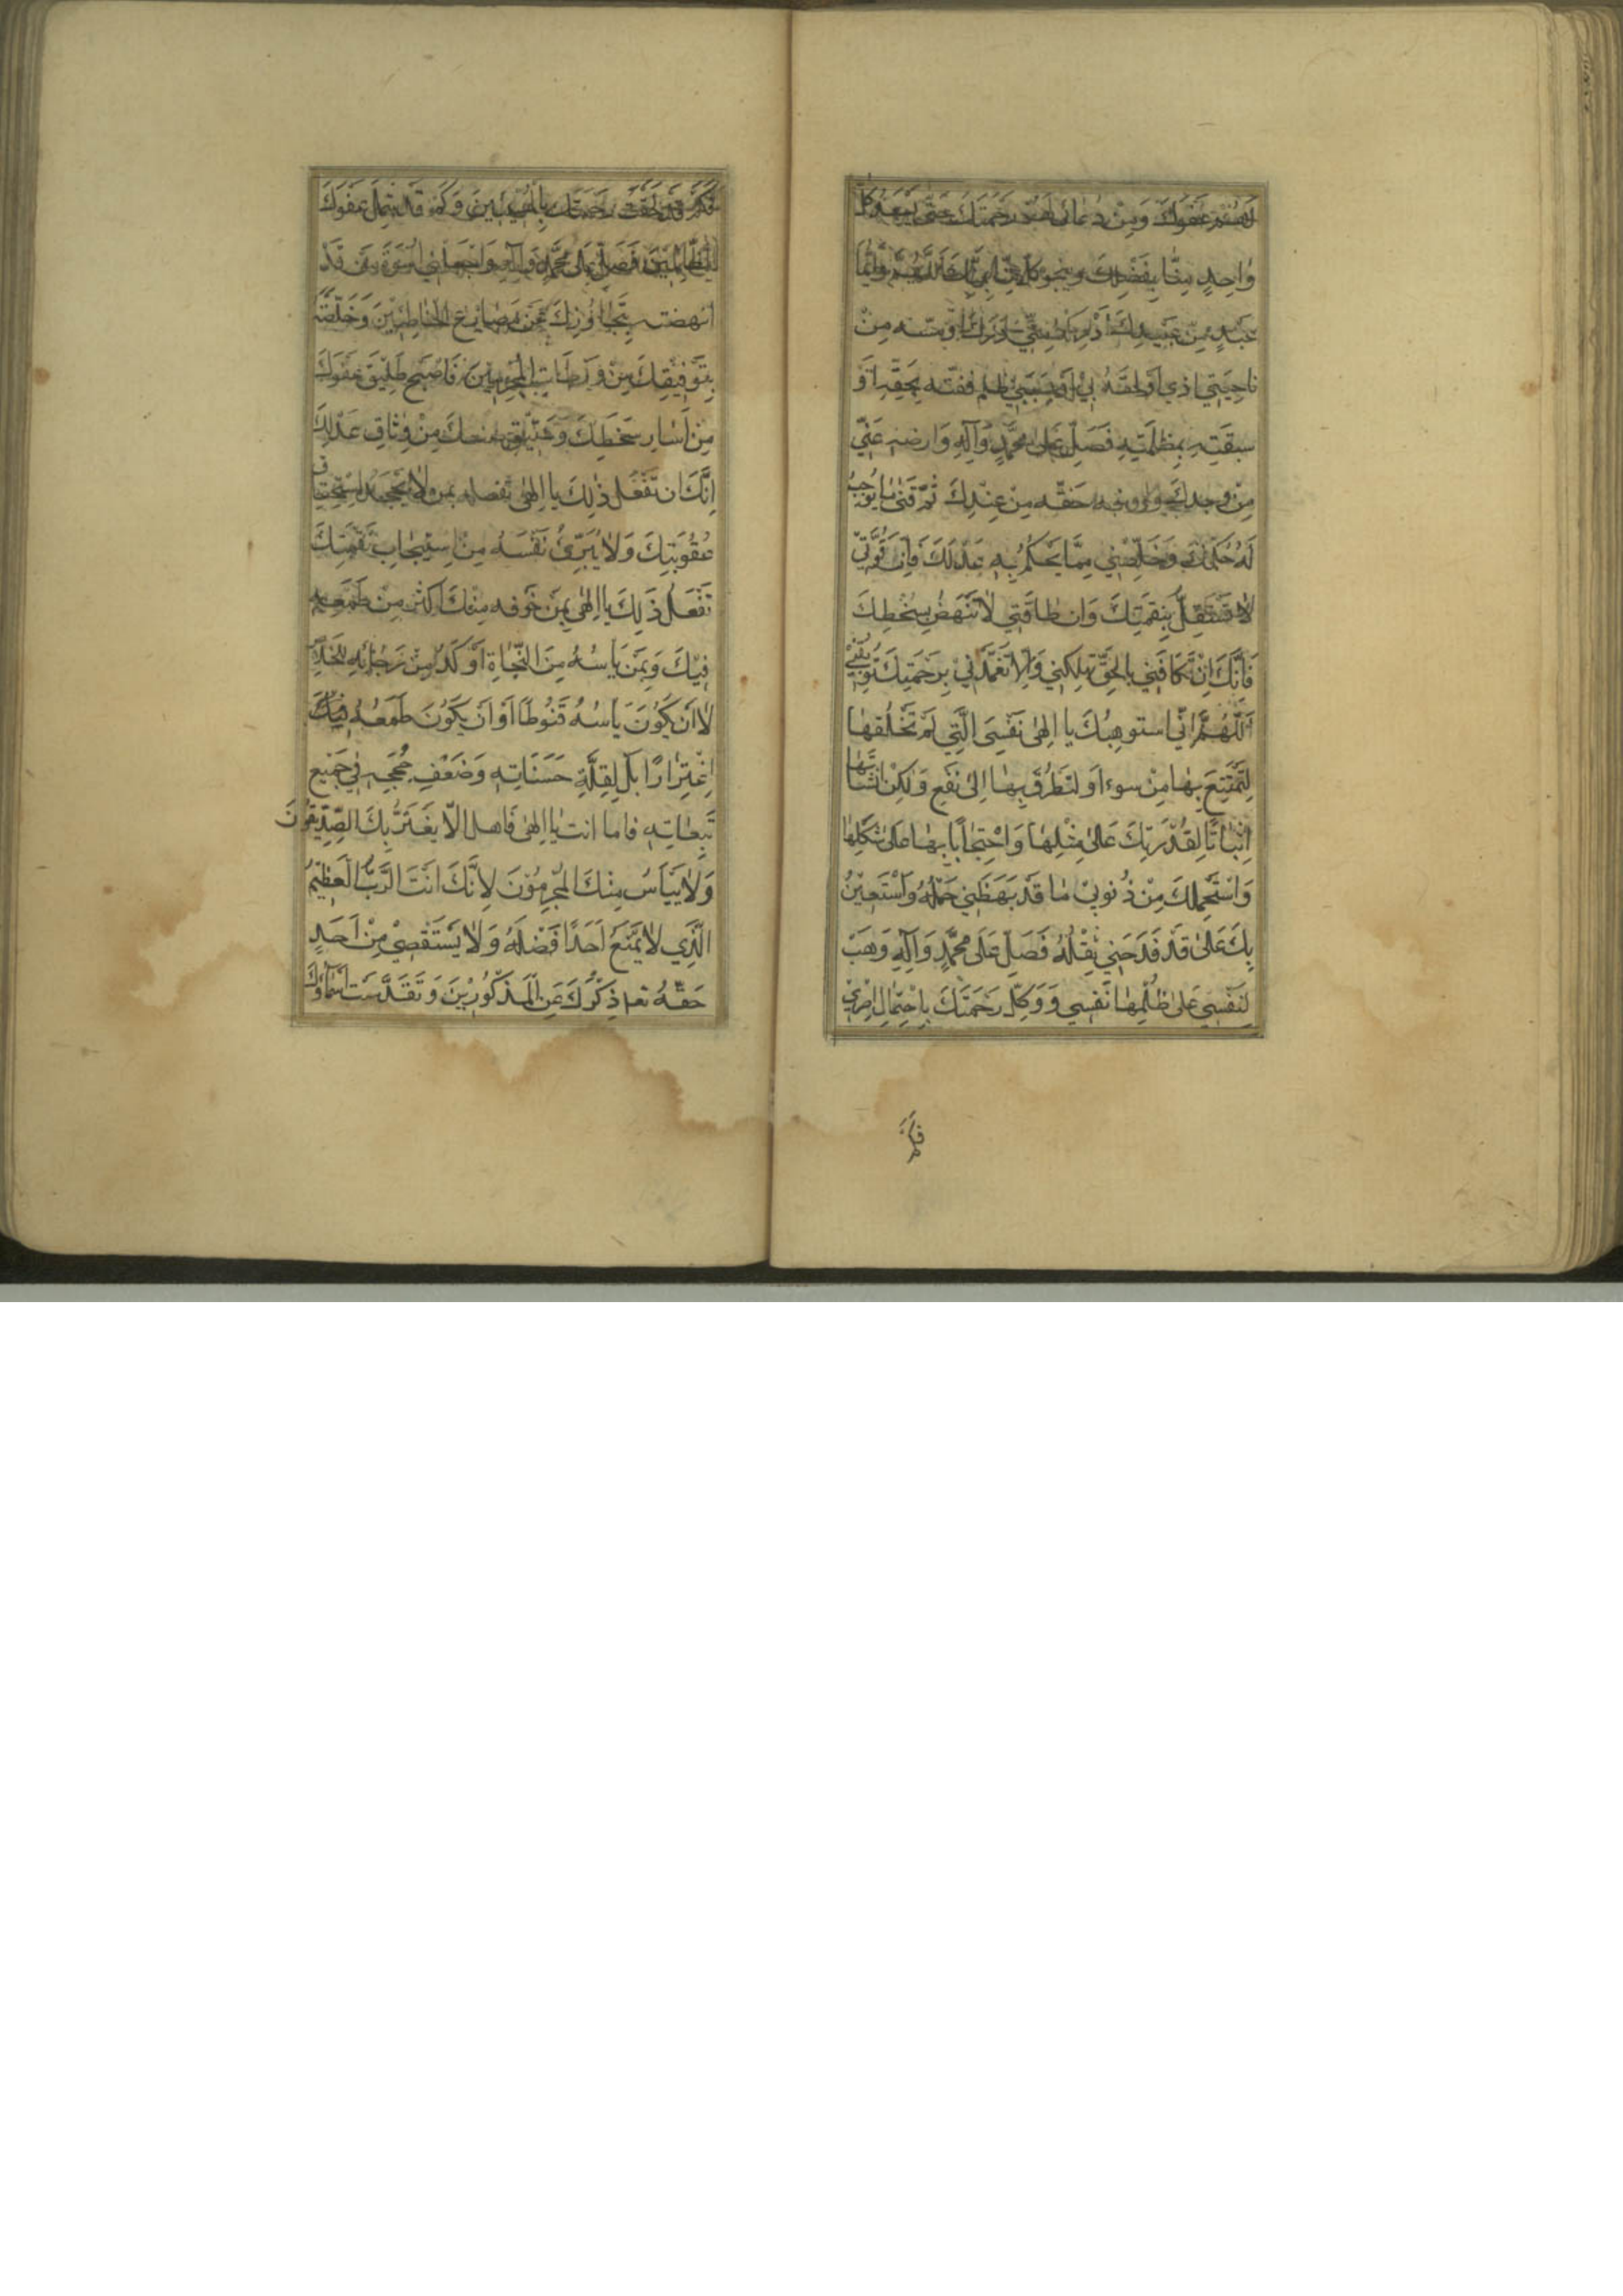 لهم عفوك ومن دعائي لهم رحمتك حتى يسعد كل
واحد منا بفضلك وينجو كل منا بمنك اللهم وايما
عبد من عبيدك ادركه مني درك او مسه من
ناحيتي اذي او لحقه بي او بسببي ظلم ففته بحقه او
سبقته بمظلمته فصل على محمد وآله وارضه عني
من وجدك واوفه حقه من عندك ثم قني ما يوجب
له حكمك وخلصني مما يحكم به عدلك فان قوتي
لا تستقل بنقمتك وان طاقتي لا تنهض بسخطك
فانك ان تكافني بالحق تهلكني والا تغمدني برحمتك توبقني
اللهم اني استوهبك يا الهي نفسي التي لم تخلقها
لتمتنع بها من سوء او لتطرق بها الى نفع ولكن انشاتها
اثباتا لقدرتك على مثلها واحتجاجا بها على شكلها
واستحملك من ذنوبي ما قد بهظني حمله واستعين
بك على ما قد فدحني ثقله فصل على محمد وآله وهب
لنفسي على ظلمها نفسي ووكل رحمتك باحتمال اصري
فكم
فكم قد لحقت رحمتك بالمسيئين وكم قد شمل عفوك
الظالمين فصل على محمد وآله واجعلني اسوة من قد
انهضته بتجاوزك عن مصارع الخاطئين وخلصته
بتوفيقك من ورطات المجرمين فاصبح طليق عفوك
من اسار سخطك وعتيق صنعك من وثاق عدلك
انك ان تفعل ذلك يا الهي تفعله بمن لا يجحد استحقاق
عقوبتك ولا يبرئ نفسه من استيجاب نقمتك
تفعل ذلك يا الهي بمن خوفه منك اكثر من طمعه
فيك وبمن ياسه من النجاة اوكد من رجائه للخلاص
لا ان يكون ياسه قنوطا او ان يكون طمعه فيك
اغترارا بل لقلة حسناته وضعف حججه في جميع
تبعاته فاما انت يا الهي فاهل الا يغتر بك الصديقون
ولا ييأس منك المجرمون لانك انت الرب العظيم
الذي لا يمنع احدا فضله ولا يستقصي من احد
حقه تعا ذكرك عن المذكورين وتقدست اسماؤك